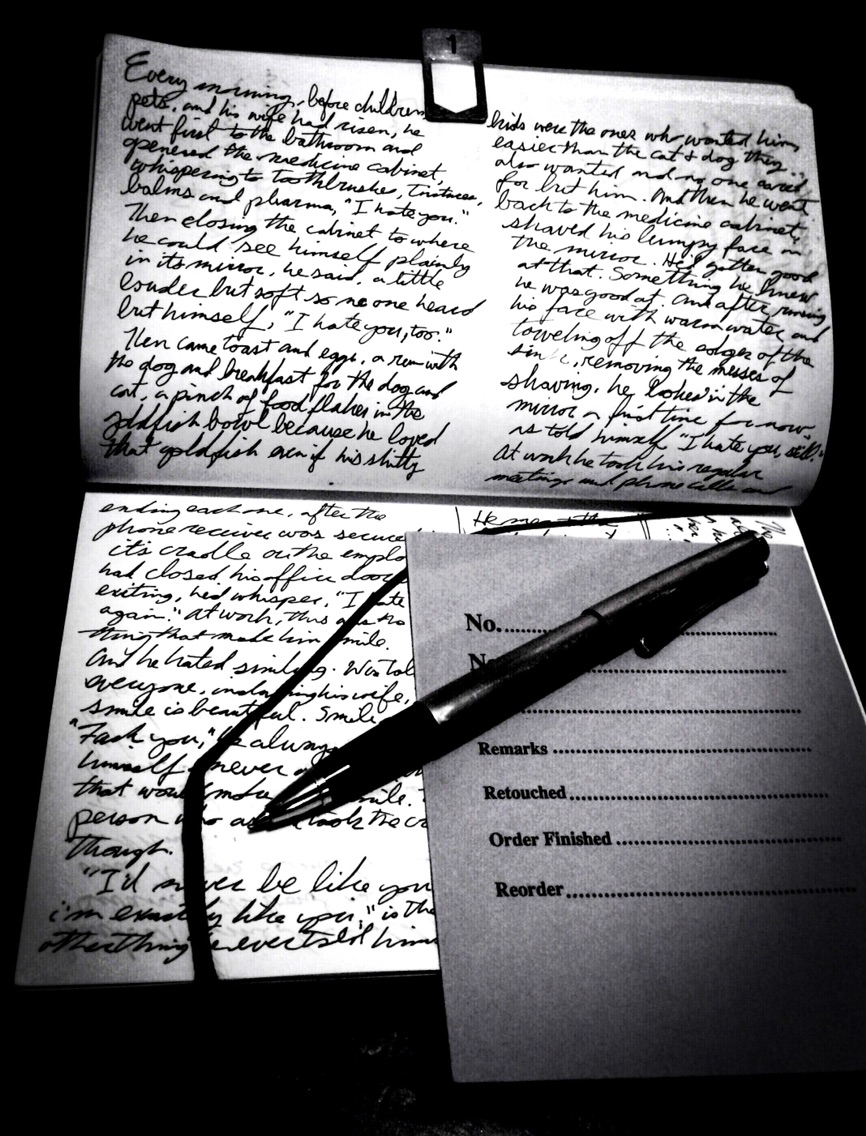 1
Every morning, before children,
pets, and his wife had risen, he
went first to the bathroom and
opened the medicine cabinet,
whispering to toothbrushes, tinctures,
balms and pharma, "I hate you."
Then closing the cabinet to where
he could see himself plainly
in its mirror, he said, a little
louder but soft so no one heard
but himself, "I hate you, too."
Then came toast and eggs, a run with
the dog and breakfast for the dog and
cat, a pinch of food flakes in the
goldfish bowl because he loved
that goldfish even if his shitty
kids were the ones who wanted him,
easier than the cat & dog they...
also wanted and no one cared
for but him. And then he went
back to the medicine cabinet,
shaved his lumpy face in
the mirror. He'd gotten good
at that. Something he knew
he was good at. And after rinsing
his face with warm water and
toweling off the edges of the
sink, removing the messes of
shaving, he looked in the
mirror a first time for now
as told himself "I hate you, still."
At work he took his regular
meetings and phone calls and
ending each one, after the
phone receiver was secure
it's cradle or the emplo
had closed his office door
exiting, he'd whisper, "I hate
again." At work, this was the
thing that made him smile.
And he hated smiling. Was tol
everyone, including his wife,
smile is beautiful. Smile
"Fuck you," he always
himself never
that would make smile.
person who took the
though.
"I'd never be like you
i'm exactly like you," is the
other thing he ever told him
He
No.
Remarks
Retouched
Order Finished
Reorder